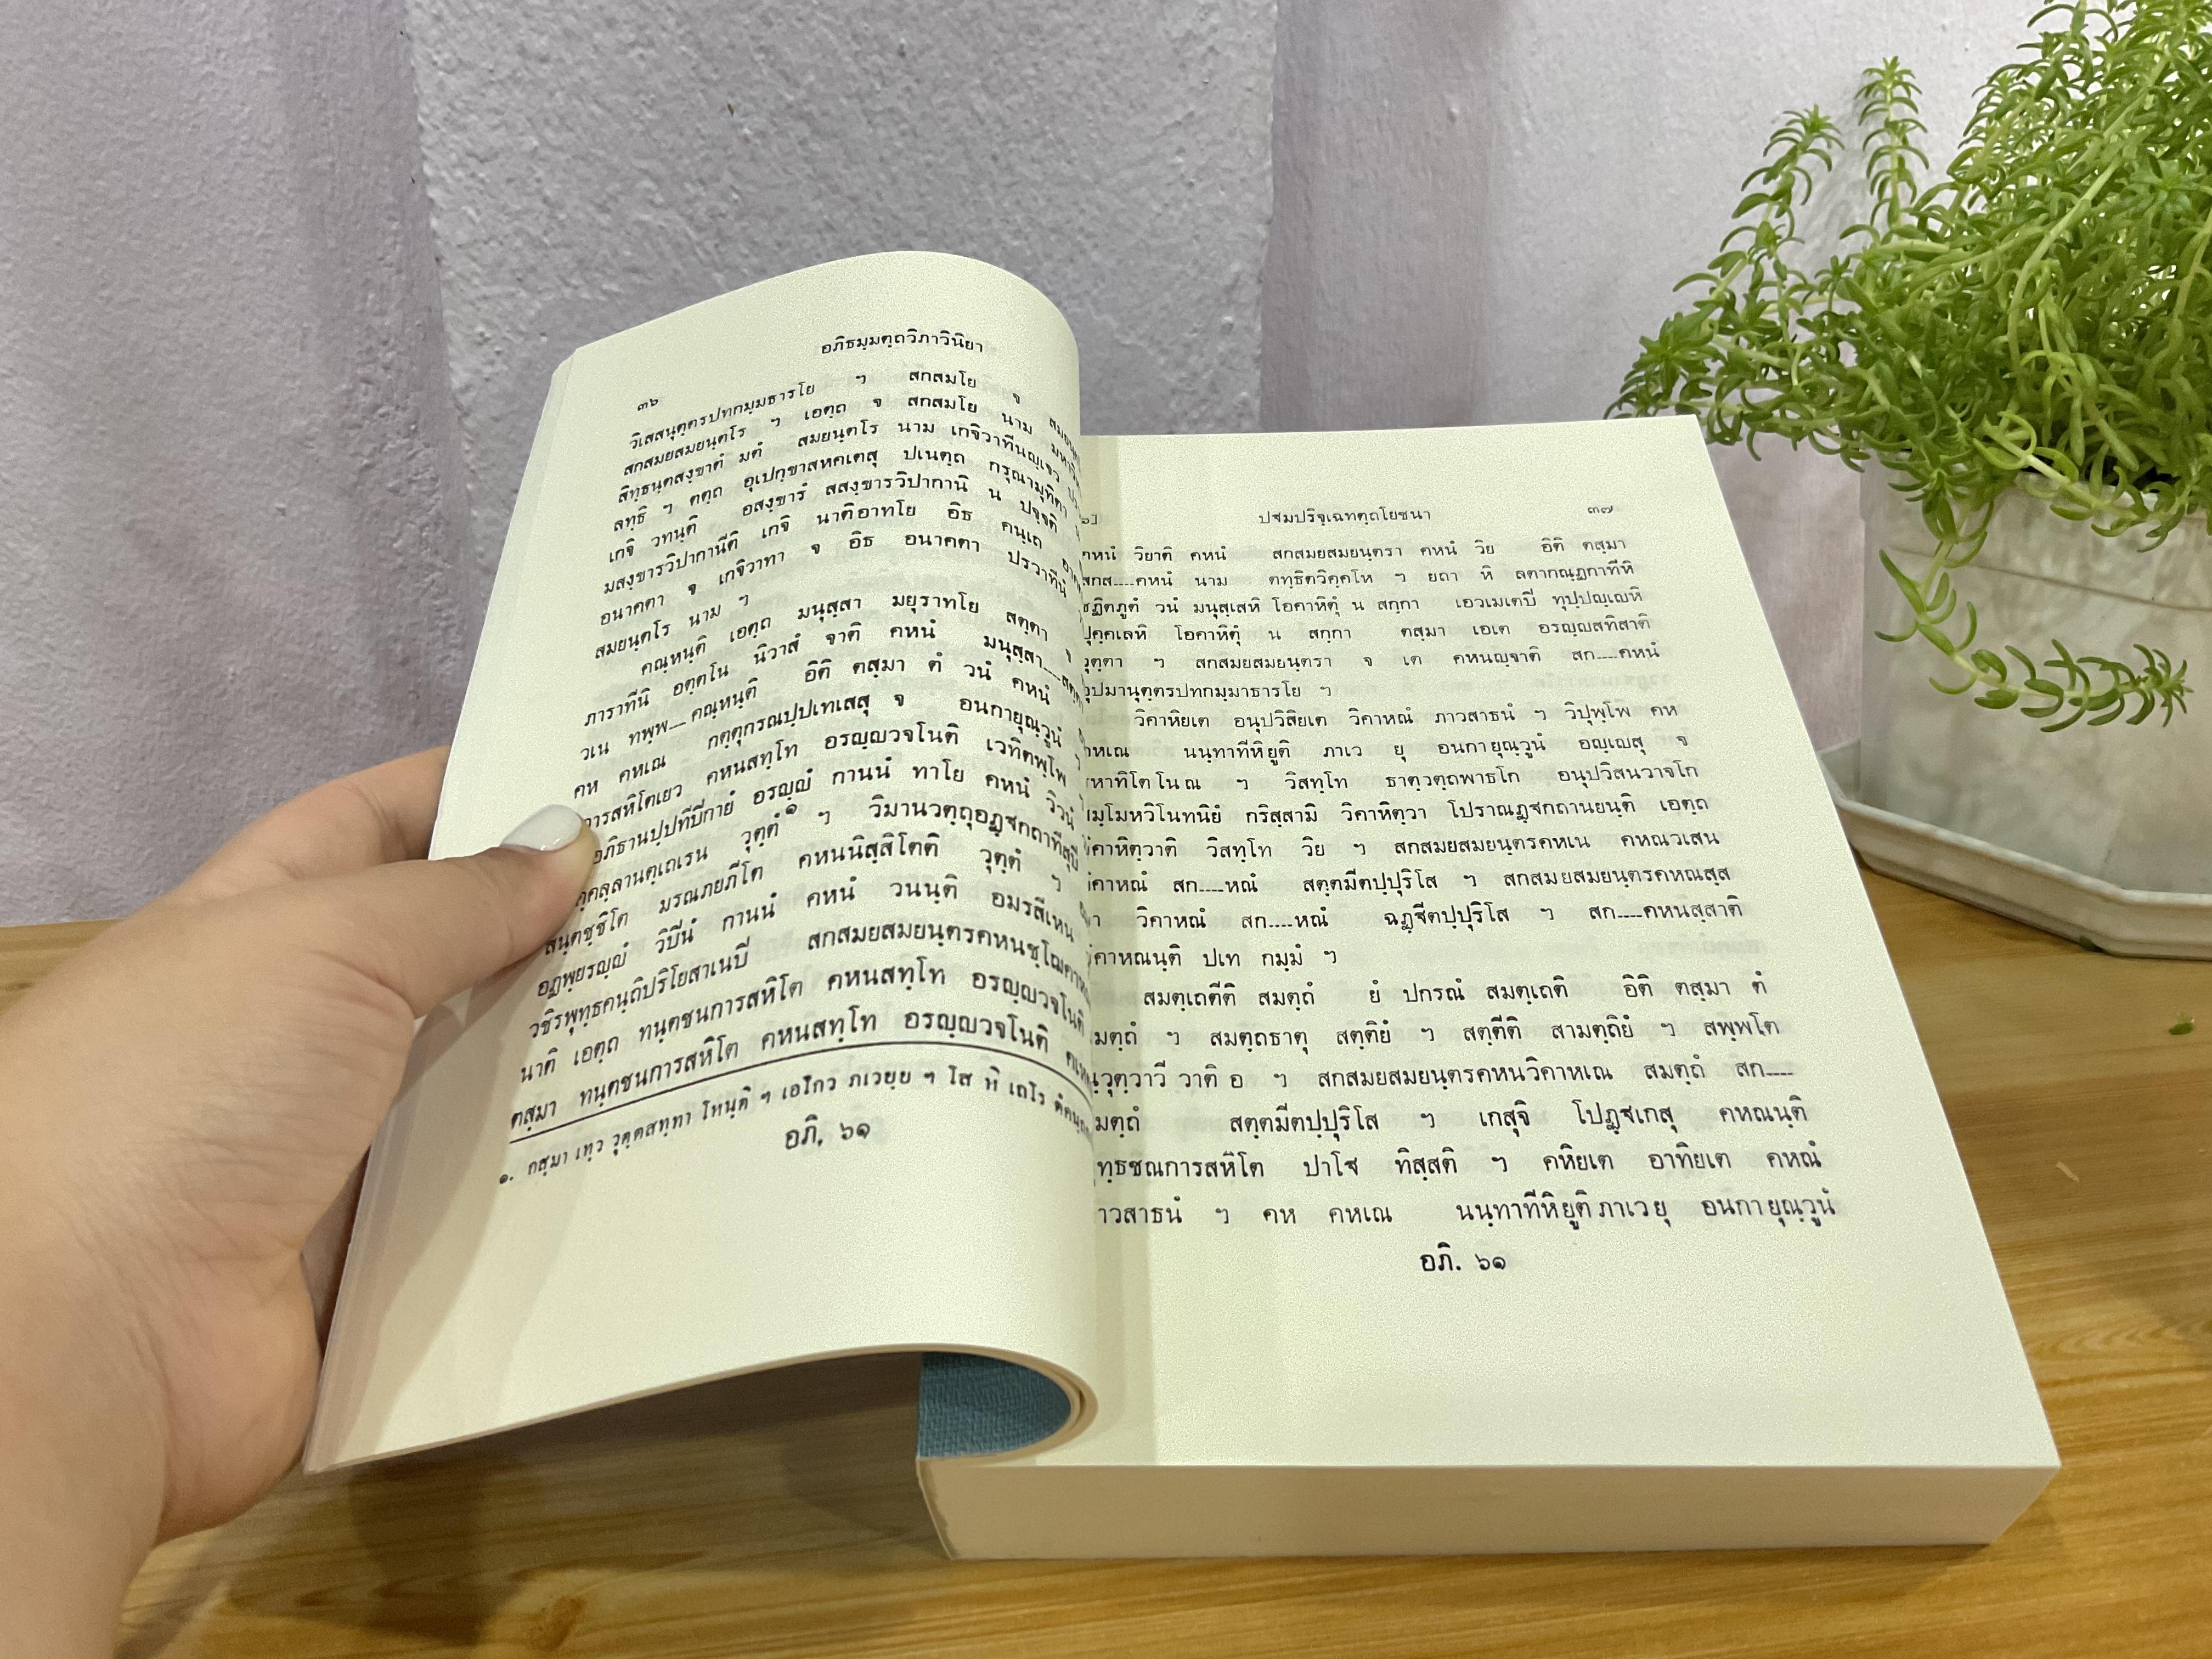 อภิธมฺมตฺถวิภาวินิยา
๓๖
วิเสสนุตฺตรปทกมฺมธารโย ฯ สกสมโย จ
สกสมยสมยนฺตโร ฯ เอตฺถ จ สกสมโย นาม
สิทฺธนฺตสงฺขาตํ มตํ สมยนฺตโร นาม เกจิวาทีนญฺเจว
ลทฺธิ ฯ ตตฺถ อุเปกฺขาสหคเตสุ ปเนตฺถ กรุณามุทิตา
เกจิ วทนฺติ อสงฺขารํ สสงฺขารวิปากานิ น ปจฺจติ
มสงฺขารวิปากานีติ เกจิ นาติอาทโย อิธ คนฺเถ
อนาคตา จ เกจิวาทา จ อิธ อนาคตา ปรวาทีนํ
สมยนฺตโร นาม ฯ
คณฺหนฺติ เอตฺถ มนุสฺสา มยุราทโย สตฺตา
ภาราทีนิ อตฺตโน นิวาสํ จาติ คหนํ มนุสฺสา
วเน ทพฺพ---คณฺหนฺติ อิติ ตสฺมา ตํ วนํ คหนํ
คห คหเณ กตฺตุกรณปฺปเทเสสุ จ อนกายุณฺวูนํ
การสหิโตเยว คหนสทฺโท อรญฺญวจโนติ เวทิตพฺโพ
อภิธานปฺปทีปีกายํ อรญฺญํ กานนํ ทาโย คหนํ วิวนํ
วุตฺตํ๑ ฯ วิมานวตฺถุอฏฺฐกถาทีสุปี
มรณภยภีโต คหนนิสฺสิโตติ วุตฺตํ ฯ
อฏพฺยรญฺญํ วิปีนํ กานนํ คหนํ วนนฺติ อมรสีเหน
วชิรพุทฺธคนฺถิปริโยสาเนปี สกสมยสมยนฺตรคหนชฺโฌคาห
นาติ เอตฺถ ทนฺตชนการสหิโต คหนสทฺโท อรญฺญวจโนติ
ตสฺมา ทนฺตชนการสหิโต คหนสทฺโท อรญฺญวจโนติ
๑. กสฺมา เทฺว วุตฺตสทฺทา โหนฺติ ฯ เอโกว ภเวยฺย ฯ โส หิ เถโร
อภิ. ๖๑
ปฐมปริจฺเฉทตฺถโยชนา ๓๗
คหนํ วิยาติ คหนํ สกสมยสมยนฺตรา คหนํ วิย อิติ ตสฺมา
สกส----คหนํ นาม ตทฺธิตวิคฺคโห ฯ ยถา หิ ลตากณฺฏกาทีหิ
ชฏิตภูตํ วนํ มนุสฺเสหิ โอคาหิตุํ น สกฺกา เอวเมเตปี ทุปฺปญฺเญหิ
ปุคฺคเลหิ โอคาหิตุํ น สกฺกา ตสฺมา เอเต อรญฺญสทิสาติ
วุตฺตา ฯ สกสมยสมยนฺตรา จ เต คหนญฺจาติ สก----คหนํ
อุปมานุตฺตรปทกมฺมาธารโย ฯ
วิคาหิยเต อนุปวิสิยเต วิคาหณํ ภาวสาธนํ ฯ วิปุพฺโพ คห
คหเณ นนฺทาทีหิยูติ ภาเว ยุ อนกายุณฺวูนํ อญฺเญสุ จ
รหาทิโตโน ณ ฯ วิสทฺโท ธาตฺวตฺถพาธโก อนุปวิสนวาจโก
วิสทฺโท วิย ฯ สกสมยสมยนฺตรคหเน คหณวเสน
วิคาหณํ สก----หณํ สตฺตมีตปฺปุริโส ฯ สกสมยสมยนฺตรคหณสฺส
วา วิคาหณํ สก----หณํ ฉฏฺฐีตปฺปุริโส ฯ สก----คหนสฺสาติ
วิคาหณนฺติ ปเท กมฺมํ ฯ
สมตฺเถตีติ สมตฺถํ ยํ ปกรณํ สมตฺเถติ อิติ ตสฺมา ตํ
สมตฺถํ ฯ สมตฺถธาตุ สตฺติยํ ฯ สตฺตีติ สามตฺถิยํ ฯ สพฺพโต
ณฺวุตฺวาวี วาติ อ ฯ สกสมยสมยนฺตรคหนวิคาหเณ สมตฺถํ สก----
สมตฺถํ สตฺตมีตปฺปุริโส ฯ เกสุจิ โปฏฺฐเกสุ คหณนฺติ
มุทฺธชณการสหิโต ปาโฐ ทิสฺสติ ฯ คหิยเต อาทิยเต คหณํ
ภาวสาธนํ ฯ คห คหเณ นนฺทาทีหิยูติ ภาเว ยุ อนกายุณฺวูนํ
อภิ. ๖๑